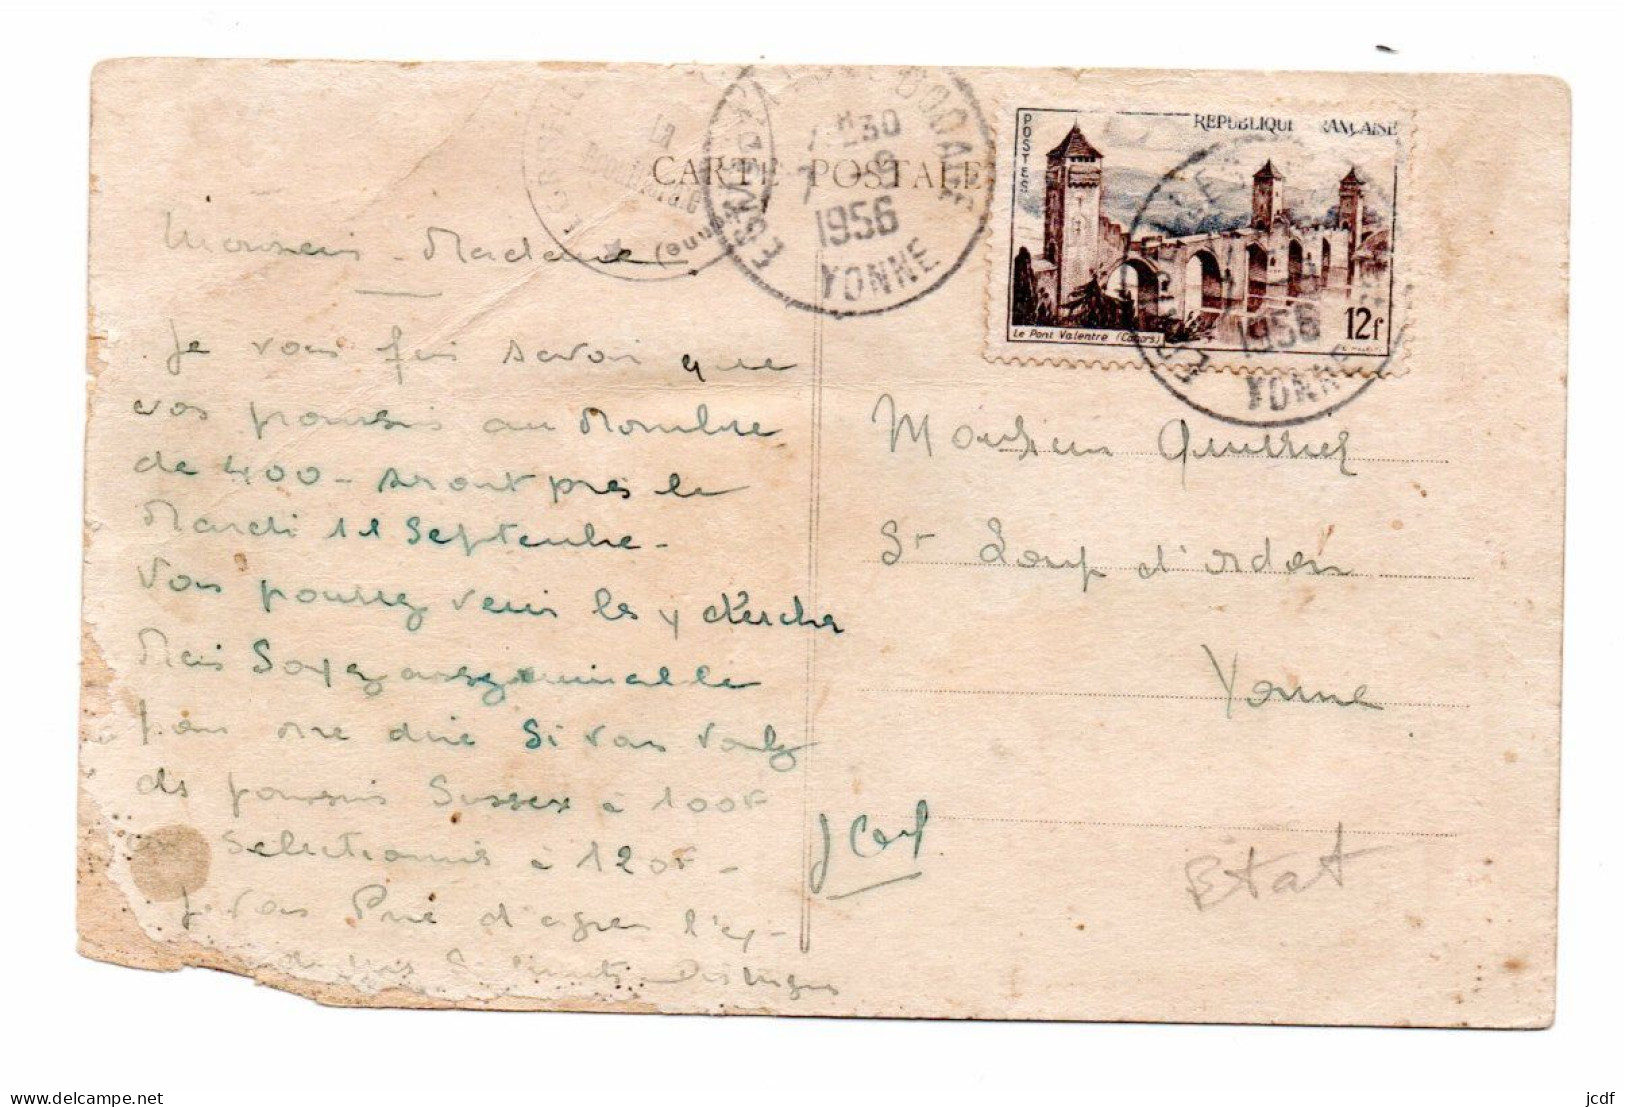 CARTE POSTALE
1956
YONNE
POSTES
REPUBLIQUE FRANÇAISE
Le Pont Valentre (Cahors)
12f
1956
YONNE
Monsieur Madame
Je vous fais savoir que
vos poussins au Nombre
de 400 - seront pres le
Mardi 11 Septembre -
Vous pourrez venir les y chercher
Mais Soyez assez aimable
pour me dire Si vous voulez
des poussins Sussex à 100F
ou Selectionnés à 120F -
Je vous Prie d'agreer l'ex-
Monsieur
St Loup d'ordon
Yonne
Etat
delcampe.net
jcdf